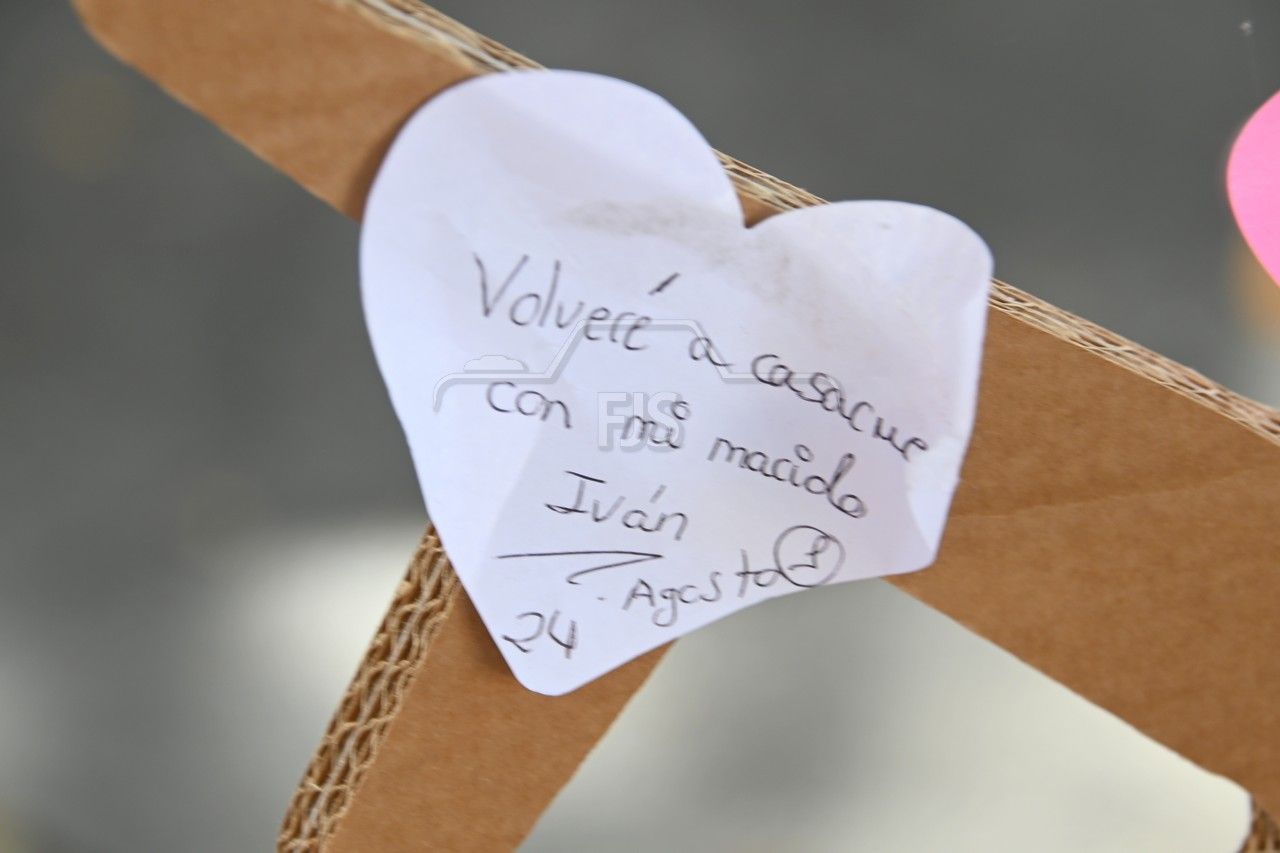 Volveré a casarme
con mi marido
Iván
. Agosto
24
FJS